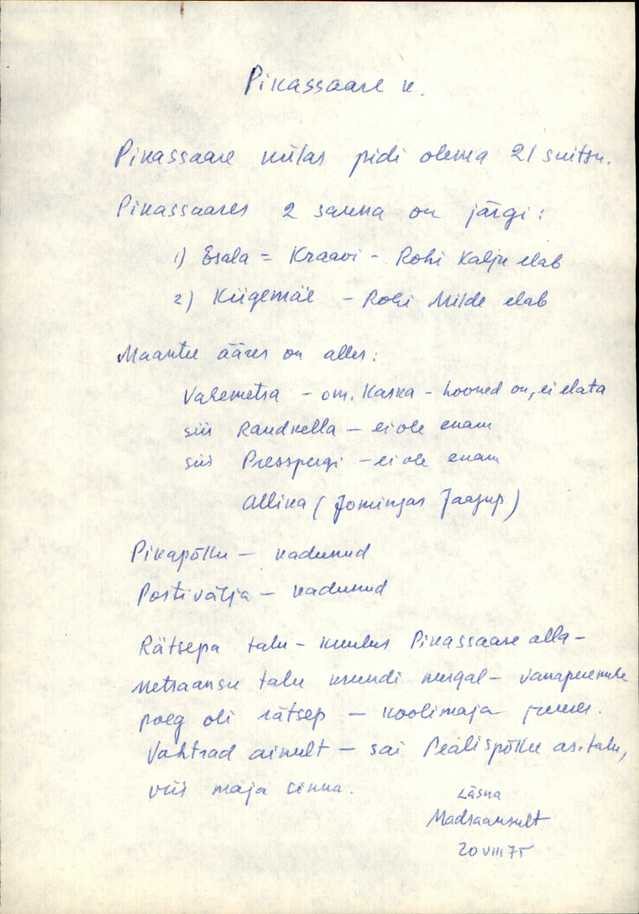 Pikassaare k.
Pikassaare külas pidi olema 21 suitsu.
Pikassaares 2 sauna on järgi:
1) Esala = Kraavi - Rohi Kalju elab
2) Kiigemäe - Rohi Milde elab
Maantee ääres on alles:
Vahemetsa - om. Kaska - hooned on, ei elata
siis Raudkella - ei ole enam
siis Presspergi - ei ole enam
Allika ( Jaagup)
Pikapõllu - kadunud
Postivälja - kadunud
Rätsepa talu - kuulus Pikassaare alla -
Metsaansu talu krundi nurgal - vanaperemehe
poeg oli rätsep - koolimaja juures.
Vahtrad ainult - sai Pealispõllu as. talu,
viis maja sinna.
Läsna
Madsaansult
20 VIII 75